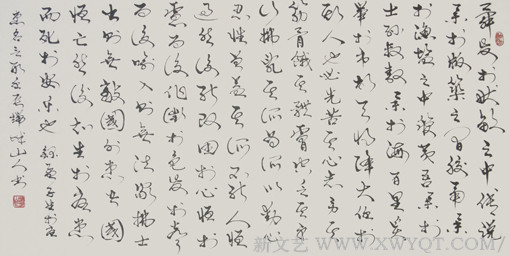 舜發於畎畝之中傅說
舉於版築之間膠鬲舉
於魚鹽之中管夷吾舉於
士孫叔敖舉於海百里奚
舉於市故天將降大任於
斯人也必先苦其心志勞其
筋骨餓其體膚空乏其身
行拂亂其所為所以動心
忍性曾益其所不能人恆
過然後能改困於心衡於
慮而後作徵於色發於聲
而後喻入則無法家拂士
出則無敵國外患者國
恆亡然後知生於憂患
而死於安樂也 孟子生於憂
患 山人書
新文艺 WWW.XWYQT.COM/